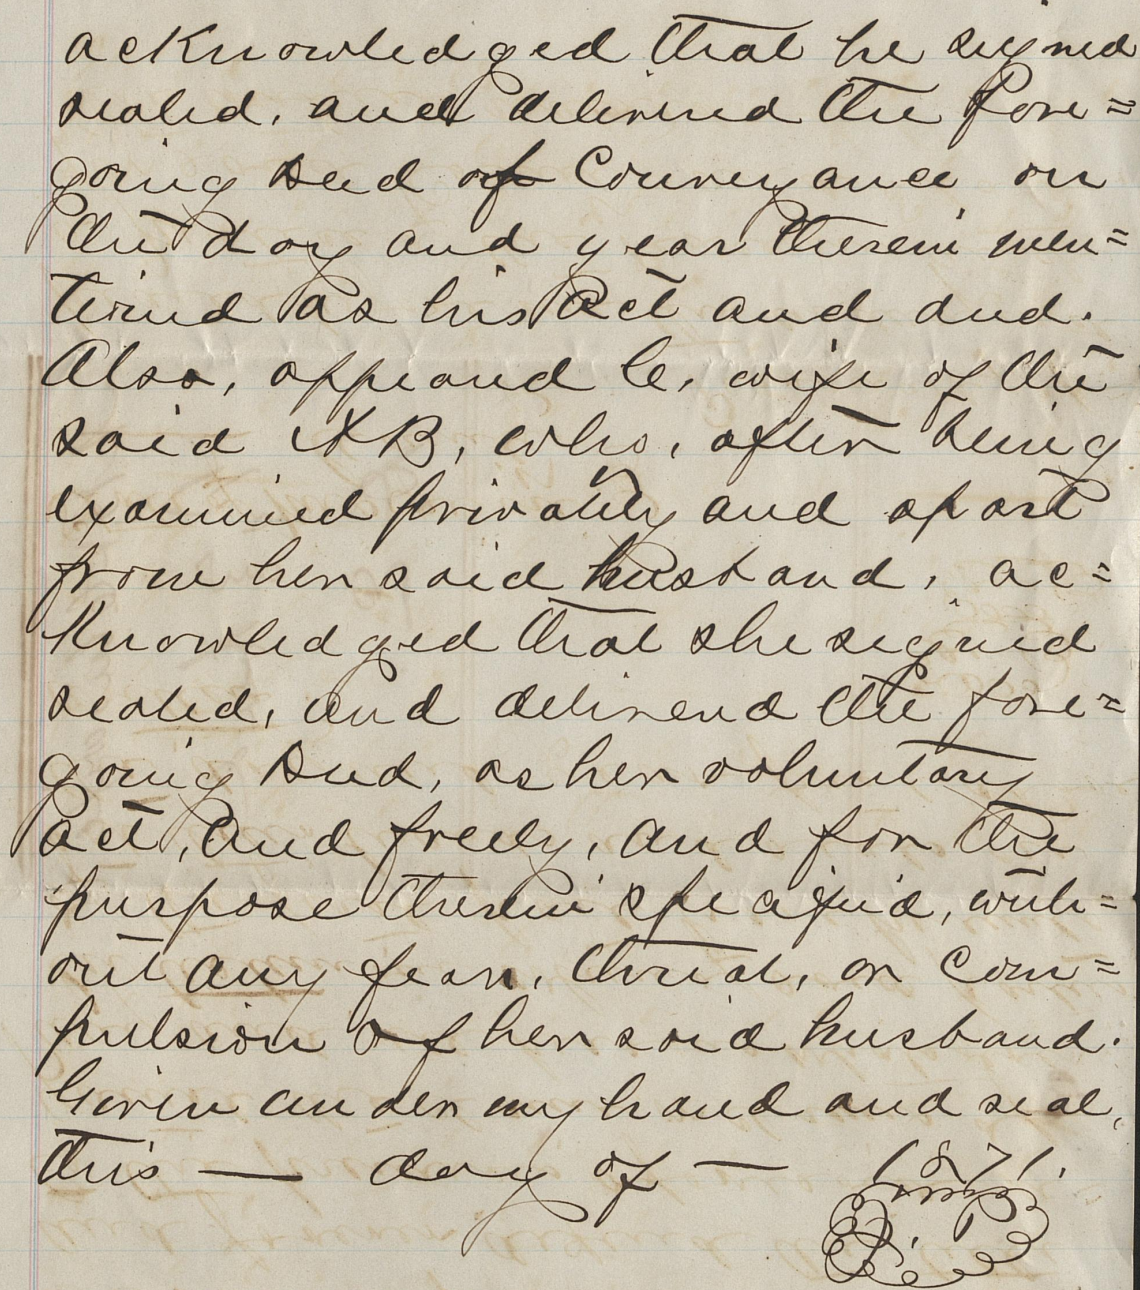 acknowledged that he signed
sealed, and delivered the fore=
going Deed of Conveyance on
the day and year therein men=
tioned as his act and deed.
Also, appeared C, wife of the
said AB, who, after being
examined privately and apart
from her said husband, ac=
knowledged that she signed
sealed, and delivered the fore=
going Deed, as her voluntary
act, and freely, and for the
purpose therein specified, with=
out any fear, threat, or com=
pulsion of her said husband.
Given under my hand and seal,
this — day of — 1871.